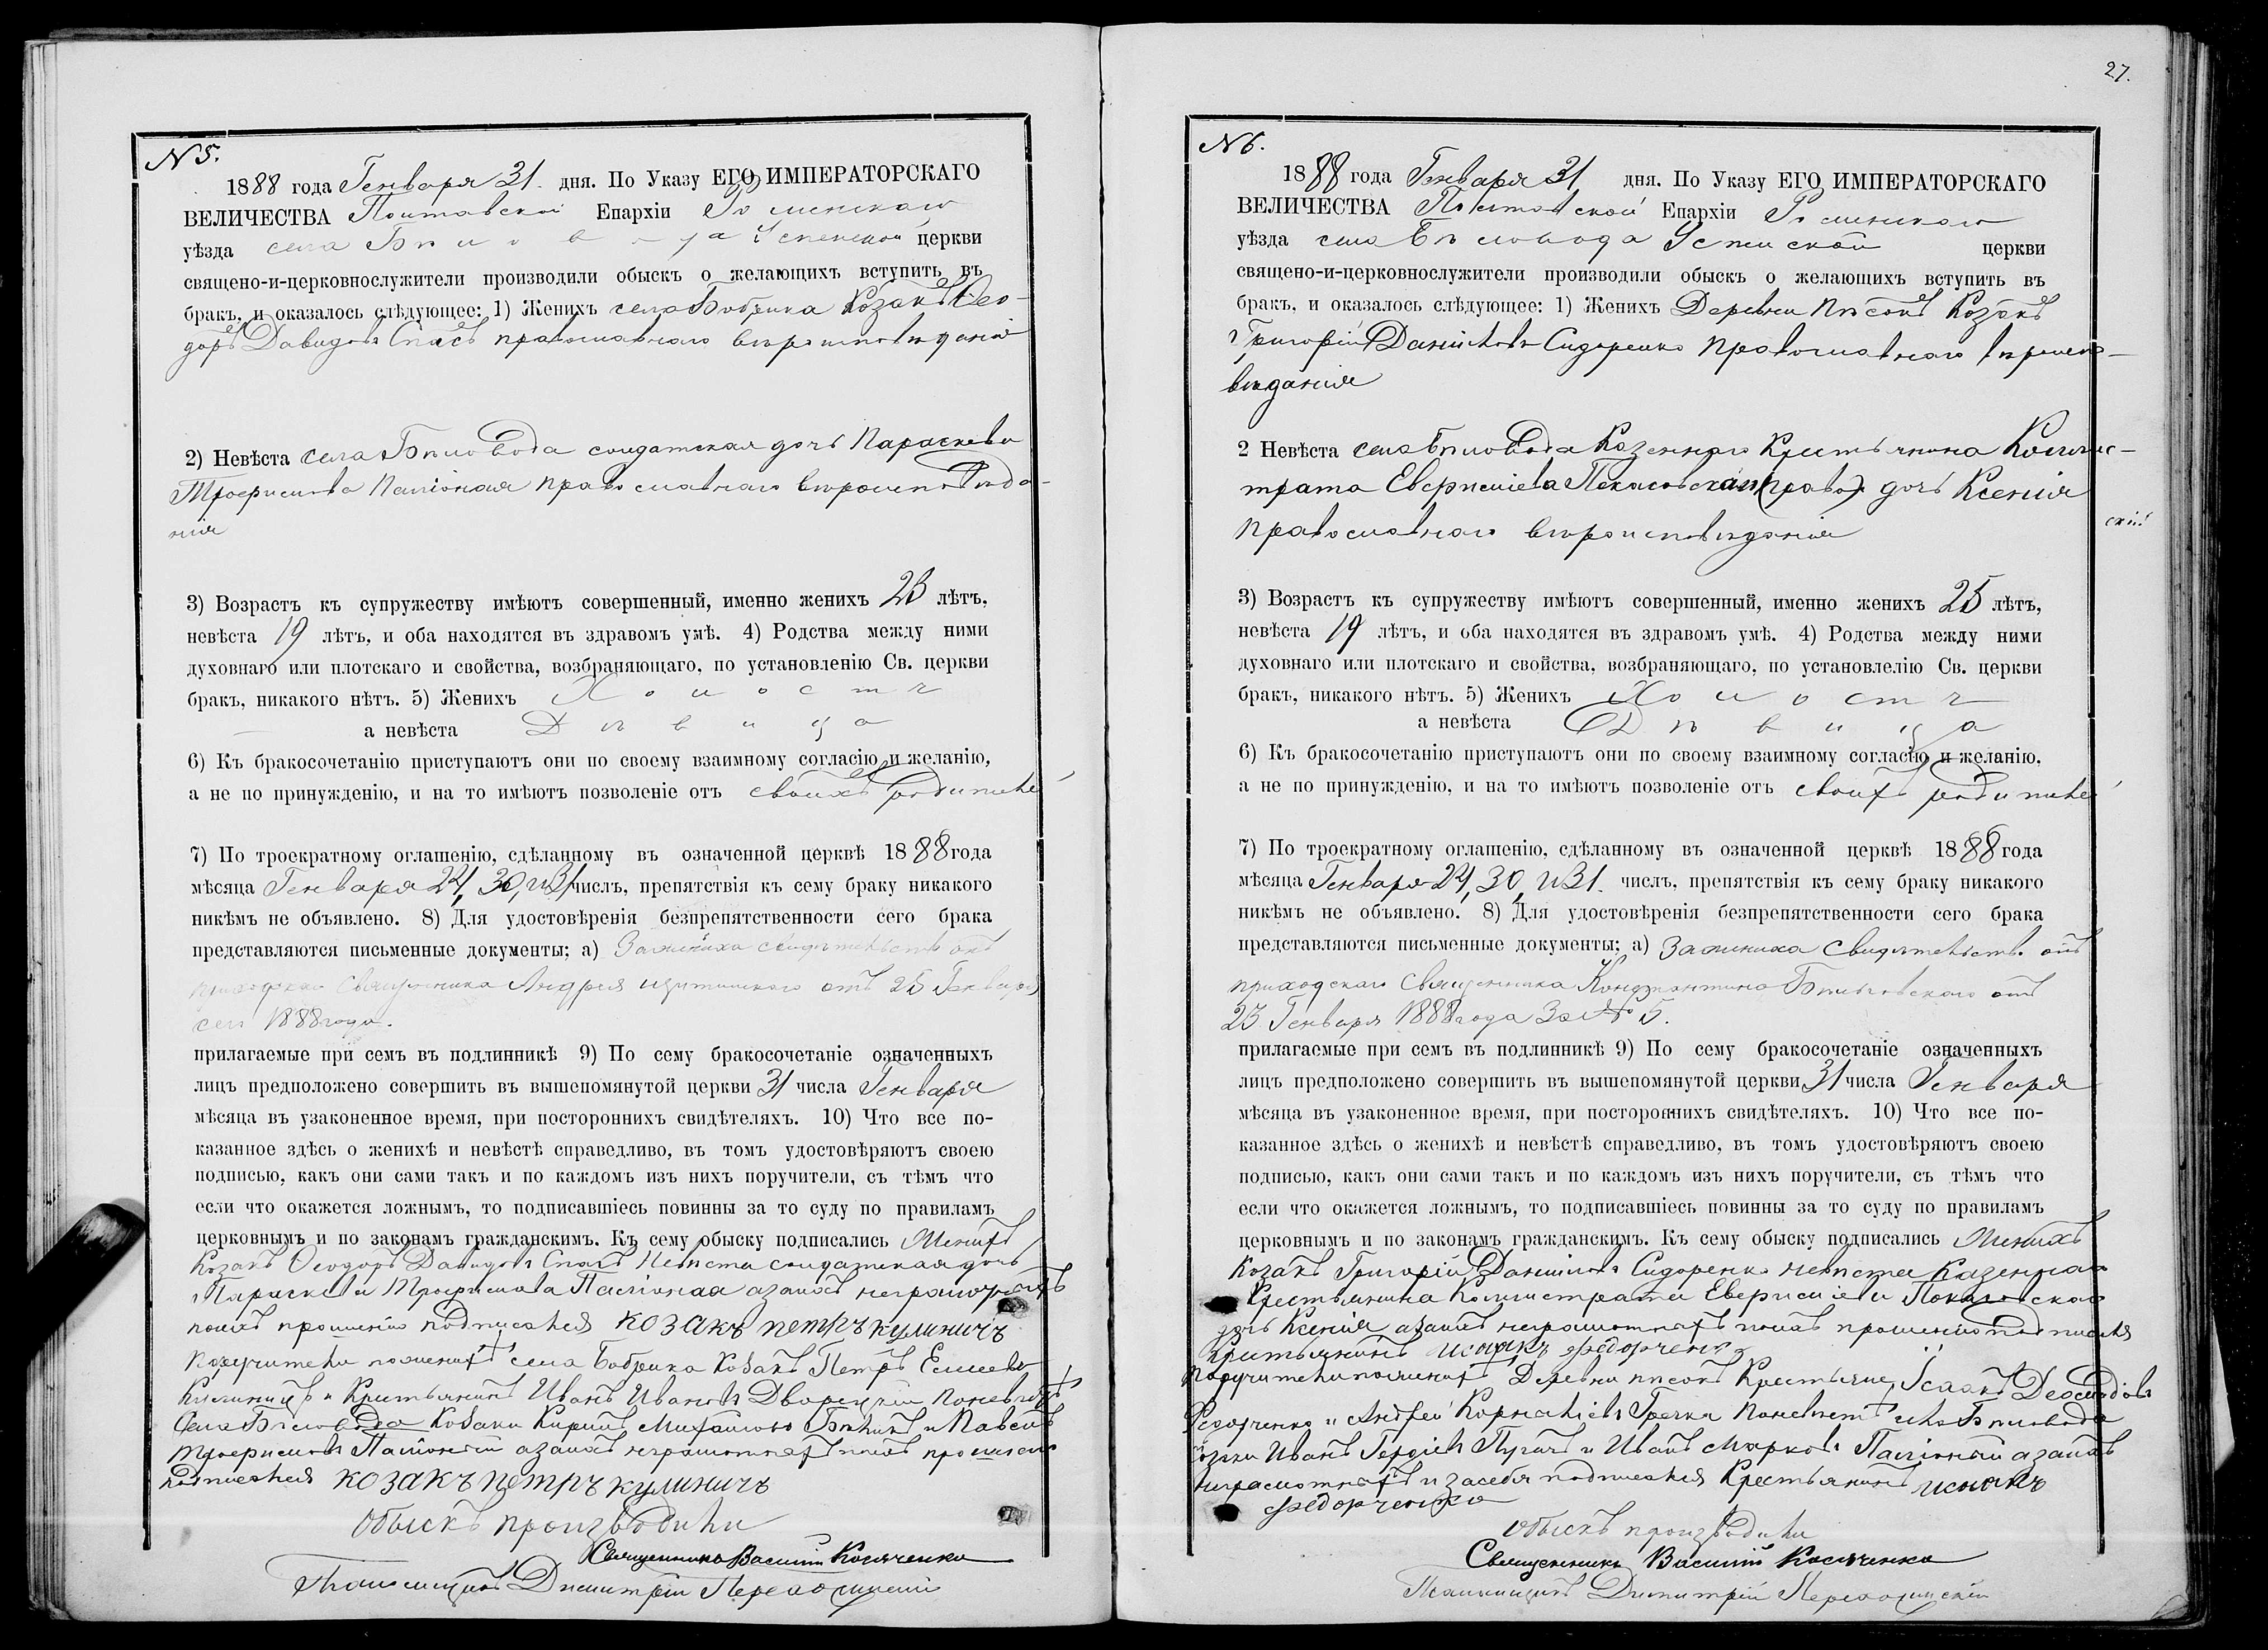 N 5.
1888 года Генваря 31. дня. По Указу ЕГО ИМПЕРАТОРСКАГО
ВЕЛИЧЕСТВА Полтавской Епархіи Роменскаго
уѣзда села Бѣловода Успенской церкви
священо-и-церковнослужители производили обыскъ о желающихъ вступить въ
бракъ, и оказалось слѣдующее: 1) Женихъ села Бобрика Козакъ Ѳео-
доръ Давидовъ Спасъ православнаго вѣроисповѣданія
2) Невѣста села Бѣловода солдатская дочь Параскева
Трофимова Палѣоная православнаго вѣроисповѣда-
нія
3) Возрастъ къ супружеству имѣютъ совершенный, именно женихъ 23 лѣтъ,
невѣста 19 лѣтъ, и оба находятся въ здравомъ умѣ. 4) Родства между ними
духовнаго или плотскаго и свойства, возбраняющаго, по установленію Св. церкви
бракъ, никакого нѣтъ. 5) Женихъ Холостъ
а невѣста Дѣвица
6) Къ бракосочетанію приступаютъ они по своему взаимному согласію и желанію,
а не по принужденію, и на то имѣютъ позволеніе отъ своихъ родителей
7) По троекратному оглашенію, сдѣланному въ означенной церквѣ 1888 года
мѣсяца Генваря 24, 30, и 31 числъ, препятствія къ сему браку никакого
никѣмъ не объявлено. 8) Для удостовѣренія безпрепятственности сего брака
представляются письменные документы; а) За жениха свидѣтельство отъ
приходскаго священника Андрея отъ 25 Генваря
сего 1888 года.
прилагаемые при семъ въ подлинникѣ 9) По сему бракосочетаніе означенныхъ
лицъ предположено совершить въ вышепомянутой церкви 31 числа Генваря
мѣсяца въ узаконенное время, при постороннихъ свидѣтеляхъ. 10) Что все по-
казанное здѣсь о женихѣ и невѣстѣ справедливо, въ томъ удостовѣряютъ своею
подписью, какъ они сами такъ и по каждомъ изъ нихъ поручители, съ тѣмъ что
если что окажется ложнымъ, то подписавшіесь повинны за то суду по правиламъ
церковнымъ и по законамъ гражданскимъ. Къ сему обыску подписались Женихъ
Козакъ Ѳеодоръ Давидовъ Спасъ Невѣста солдатская дочь
Параскева Трофимова Палѣоная а за ихъ неграмотныхъ
поихъ прошенію подписался козакъ петръ кулиничъ
Поручители по женихѣ села Бобрика Козакъ Петръ Елисеевъ
Кулиничъ и Крестьянинъ Иванъ Ивановъ Дворецкій по невѣстѣ
села Бѣловода Козаки Кирилъ Михайловъ и Павелъ
Трофимовъ Палѣоный а за ихъ неграмотныхъ поихъ прошенію
подписался козакъ петръ кулиничъ
Обыскъ производили
Священникъ Василій Косяченко
Псаломщикъ Димитрій
27.
N 6.
1888 года Генваря 31 дня. По Указу ЕГО ИМПЕРАТОРСКАГО
ВЕЛИЧЕСТВА Полтавской Епархіи Роменскаго
уѣзда села Бѣловода Успенской церкви
священо-и-церковнослужители производили обыскъ о желающихъ вступить въ
бракъ, и оказалось слѣдующее: 1) Женихъ Деревни Пѣсокъ Козакъ
Григорій Даніиловъ Сидоренко Православнаго вѣроиспо-
вѣданія
2 Невѣста села Бѣловода Казеннаго Крестьянина Калист-
трата дочь Ксенія
скій
православнаго вѣроисповѣданія
3) Возрастъ къ супружеству имѣютъ совершенный, именно женихъ 25 лѣтъ,
невѣста 19 лѣтъ, и оба находятся въ здравомъ умѣ. 4) Родства между ними
духовнаго или плотскаго и свойства, возбраняющаго, по установлелію Св. церкви
бракъ, никакого нѣтъ. 5) Женихъ Холостъ
а невѣста Дѣвица
6) Къ бракосочетанію приступаютъ они по своему взаимному согласію и желанію,
а не по принужденію, и на то имѣютъ позволеніе отъ своихъ родителей
7) По троекратному оглашенію, сдѣланному въ означенной церквѣ 1888 года
мѣсяца Генваря 24, 30, и 31. числъ, препятствія къ сему браку никакого
никѣмъ не объявлено. 8) Для удостовѣренія безпрепятственности сего брака
представляются письменные документы; а) За жениха свидѣтельство отъ
приходскаго священника Константина отъ
23 Генваря 1888 года За № 5.
прилагаемые при семъ въ подлинникѣ 9) По сему бракосочетаніе означенныхъ
лицъ предположено совершить въ вышепомянутой церкви 31 числа Генваря
мѣсяца въ узаконенное время, при постороннихъ свидѣтеляхъ. 10) Что все по-
казанное здѣсь о женихѣ и невѣстѣ справедливо, въ томъ удостовѣряютъ своею
подписью, какъ они сами такъ и по каждомъ изъ нихъ поручители, съ тѣмъ что
если что окажется ложнымъ, то подписавшіесь повинны за то суду по правиламъ
церковнымъ и по законамъ гражданскимъ. Къ сему обыску подписались Женихъ
Козакъ Григорій Даніиловъ Сидоренко невѣста Казеннаго
Крестьянина Калистрата
дочь Ксенія а за ихъ неграмотныхъ поихъ прошенію подписался
крестьянинъ исаакъ федорченко
Поручители по женихѣ Деревни Пѣсокъ Крестьяне Ісаакъ
Федорченко и Андрей Корнѣліевъ Гречка по невѣстѣ села Бѣловода
козаки Иванъ Гордіевъ Пугачъ и Иванъ Марковъ Палѣоный а за ихъ
неграмотныхъ и за себя подписался Крестьянинъ исаакъ
федорченко
Обыскъ производили
Священникъ Василій Косяченко
Псаломщикъ Димитрій